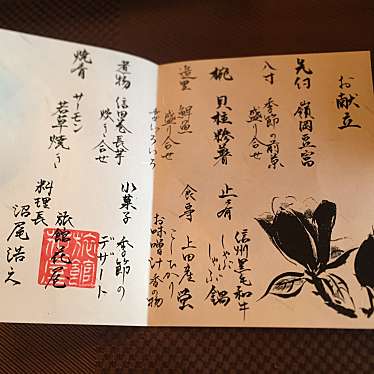 お献立
先付 嶺岡豆富
八寸 季節の前菜
盛り合せ
椀 貝柱糝薯
造里 鮮魚
盛り合せ
妻いろいろ
煮物 信田巻長芋
炊き合せ
焼肴 サーモン
若草焼き
止肴 信州黒毛和牛
しゃぶしゃぶ鍋
食事 上田産 蛍
こしひかり
お味噌汁 香の物
小菓子 季節の
デザート
旅館 花屋
料理長
沼尾浩之